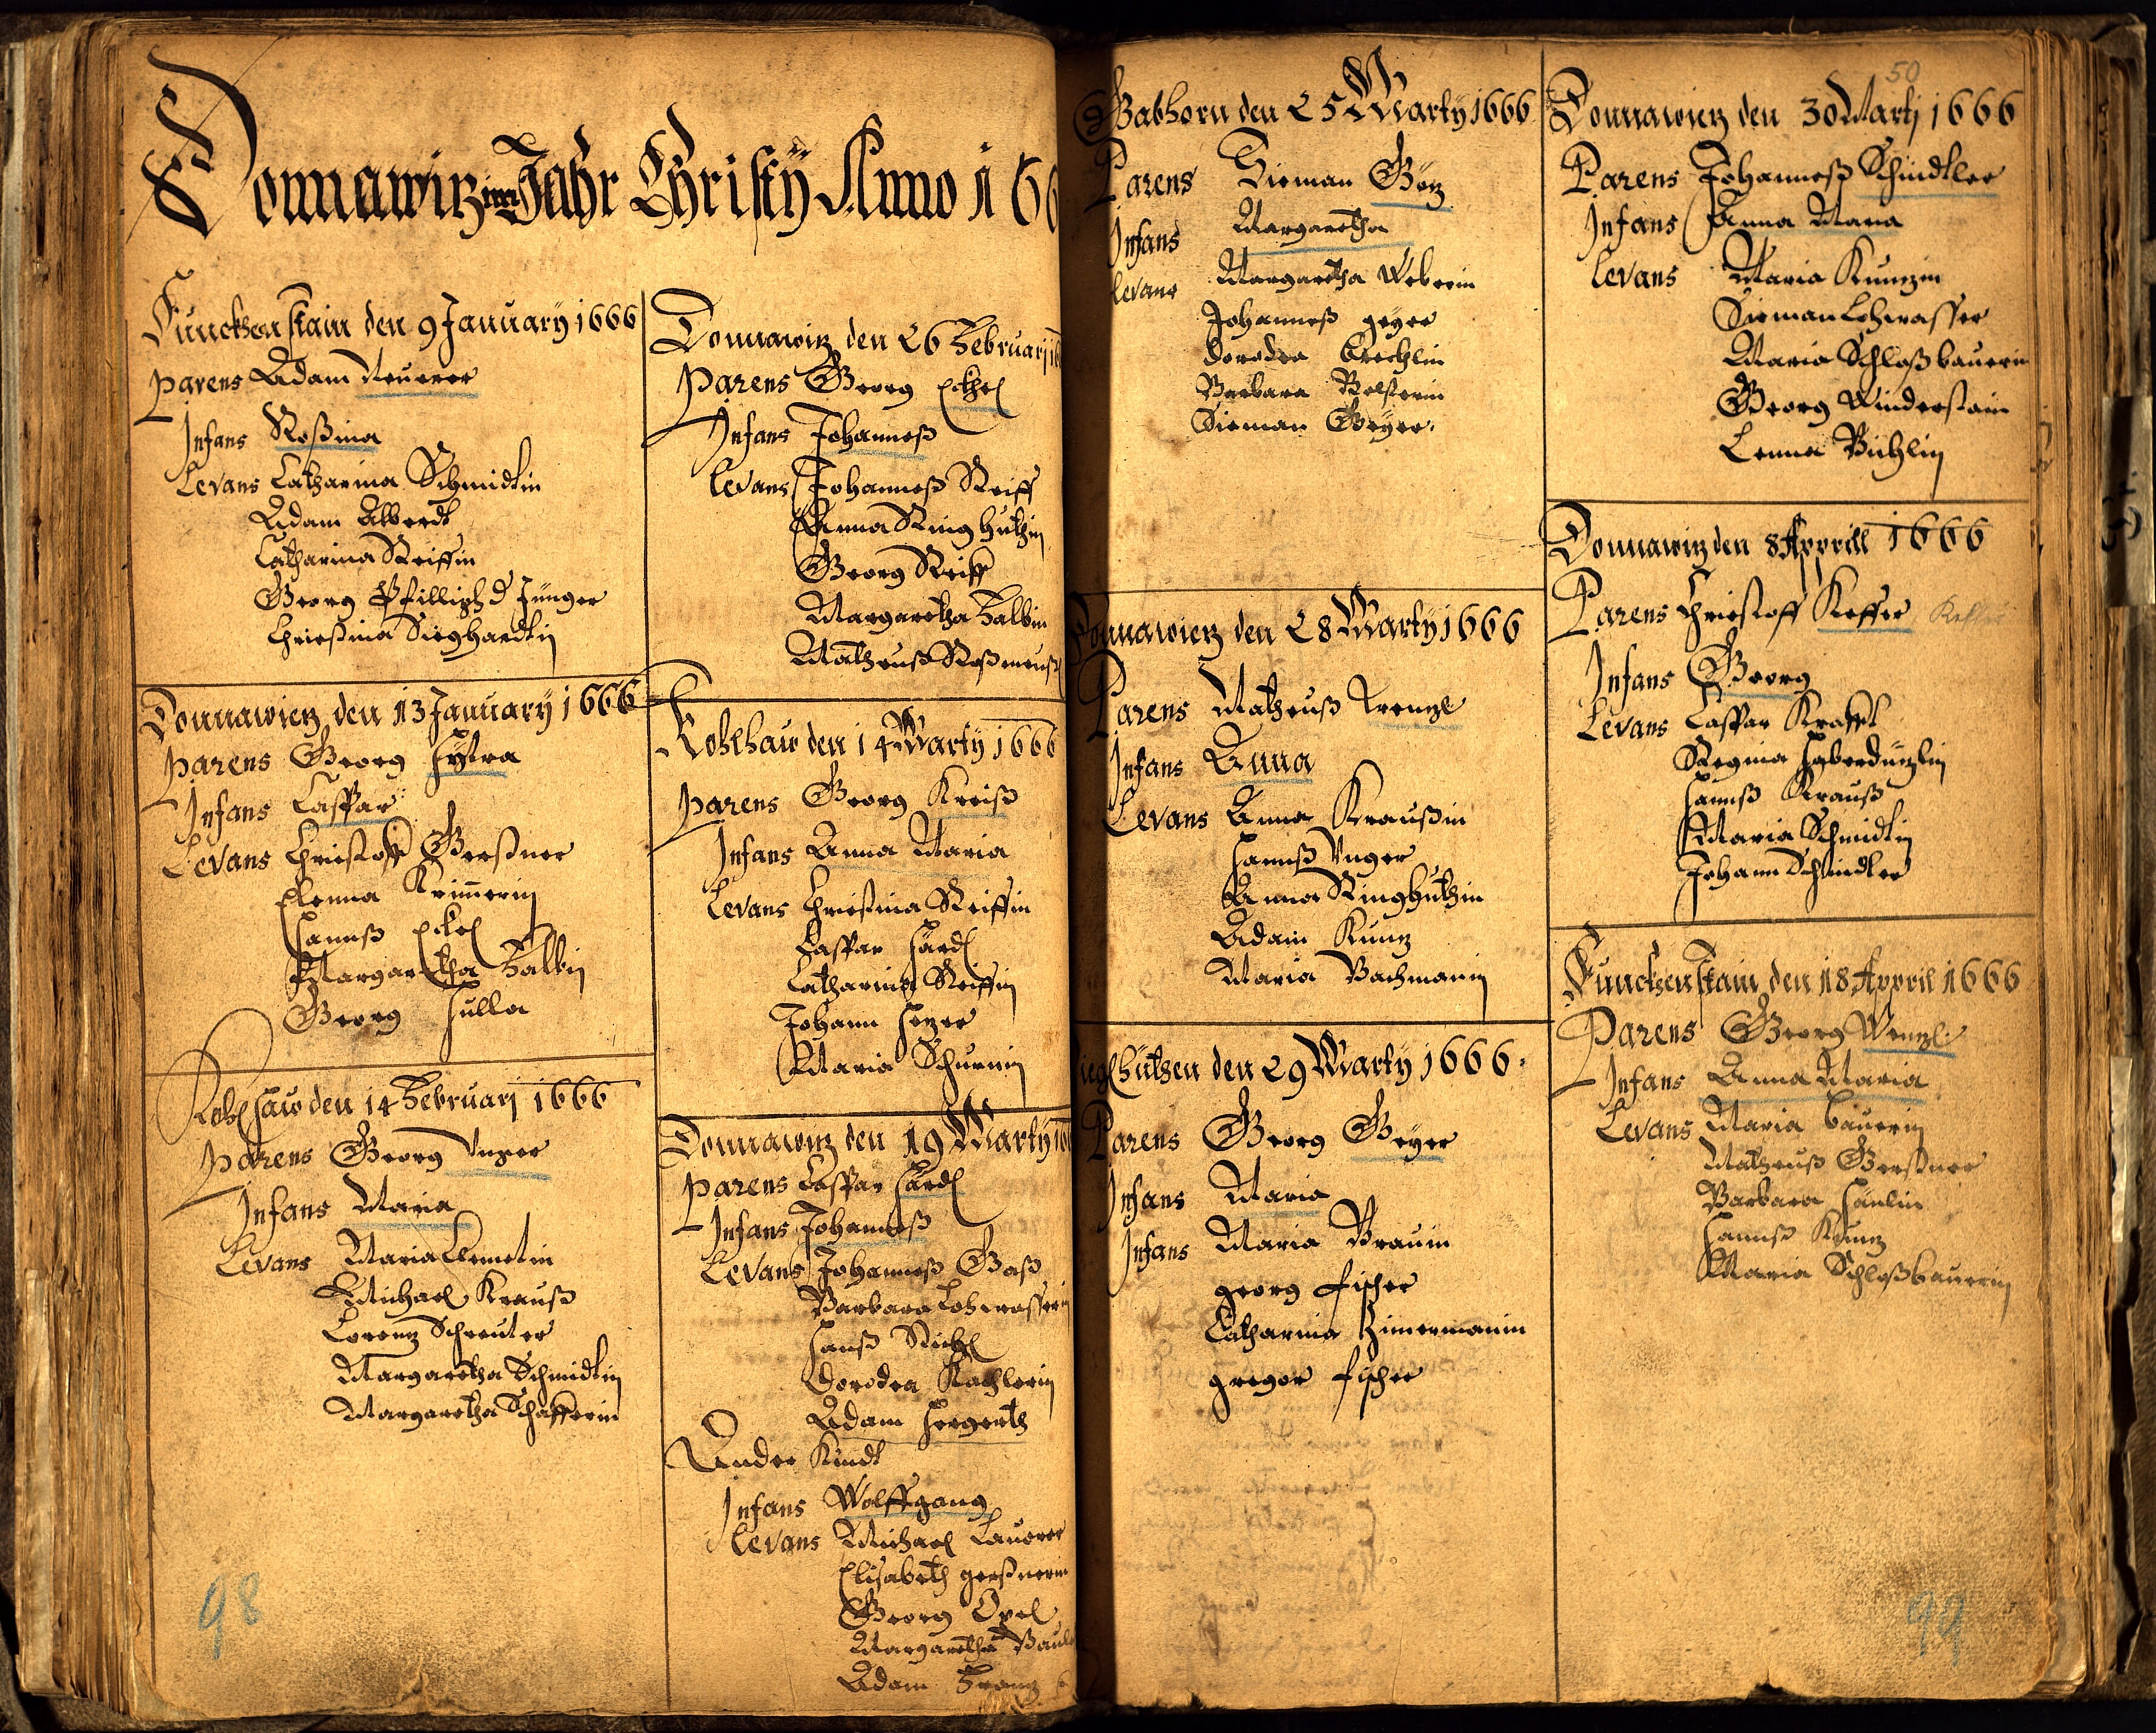 Donnawitz im Jahr Christÿ Anno 166
Funckhenstain den 9 January 1666
Parens Adam Neuerer
Infans Roßina
Levans Catharina Schmidtin
Adam Albert
Catharina Reiffin
Georg Pfilliph d Jünger
Christina Sieghardtin
Donnawitz den 13 January 1666
Parens Georg
Infans Caspar
Levans Christoff Gerstner
Elenna Krimerin
Hannß Eckel
Margaretha Balbin
Georg Hulla
Kohlhaw den 14 Februarj 1666
Parens Georg Unger
Infans Maria
Levans Maria Clemetin
Michael Krauß
Lorentz Schreuter
Margaretha Schmidtin
Margaretha Schafferin
98
Donnawitz den 26 Februarj
Parens Georg Eckel
Infans Johanneß
Levans Johanneß Reiff
Anna Ringhutin
Georg Reiff
Margaretha Balbin
Matheuß Roßmeußl
Kohlhaw den 14 Marty 1666
Parens Georg Kreiß
Infans Anna Maria
Levans Christina Reiffin
Caspar Härdl
Catharina Reiffin
Johann
Maria Schurnin
Donnawitz den 19 Marty
Parens Caspar Härdl
Infans Johanneß
Levans Johanneß Gaß
Barbara Lohwasserin
Hanß
Dorodea Kachlerin
Adam Hergerth
Ander Kindt
Infans Wolffgang
Levans Michael Lauerer
Elisabeth gerstnerin
Georg Opel
Margaretha
Adam Frantz
50
Gabhorn den 25 Marty 1666
Parens Sieman Götz
Infans Margaretha
Levans Margaretha Weberin
Johanneß geyer
Dorodea
Barbara
Sieman Geyer
Donnawitz den 28 Marty 1666
Parens Matheuß
Infans Anna
Levans Anna Kraußin
Hannß Unger
Anna Ringhutin
Adam Kuntz
Maria Bachmanin
den 29 Marty 1666
Parens Georg Geyer
Infans Maria
Infans Maria Braunin
georg fischer
Catharina Zimermanin
gregor fischer
Donnawitz den 30 Martj 1666
Parens Johanneß Schindtler
Infans Anna Maria
Levans Maria Kuntzin
Sieman Lohwasser
Maria Schloßbauerin
Georg Winderstain
Lenna Pichlin
Donnawitz den 8 Apprill 1666
Parens Christoff Keffer
Infans Georg
Levans Caspar Krafft
Regina Haberdürtzlin
Hannß Krauß
Maria Schmidtin
Johann Schindler
Funckhenstain den 18 Appril 1666
Parens Georg Wenzl
Infans Anna Maria
Levans Maria Bauerin
Matheuß Gerstner
Barbara Hänlin
Hannß Kuntz
Maria Schloßbauerin
99